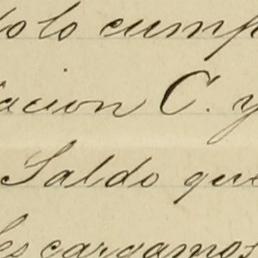 lo cump
acion C. y
Saldo que
les cargamos